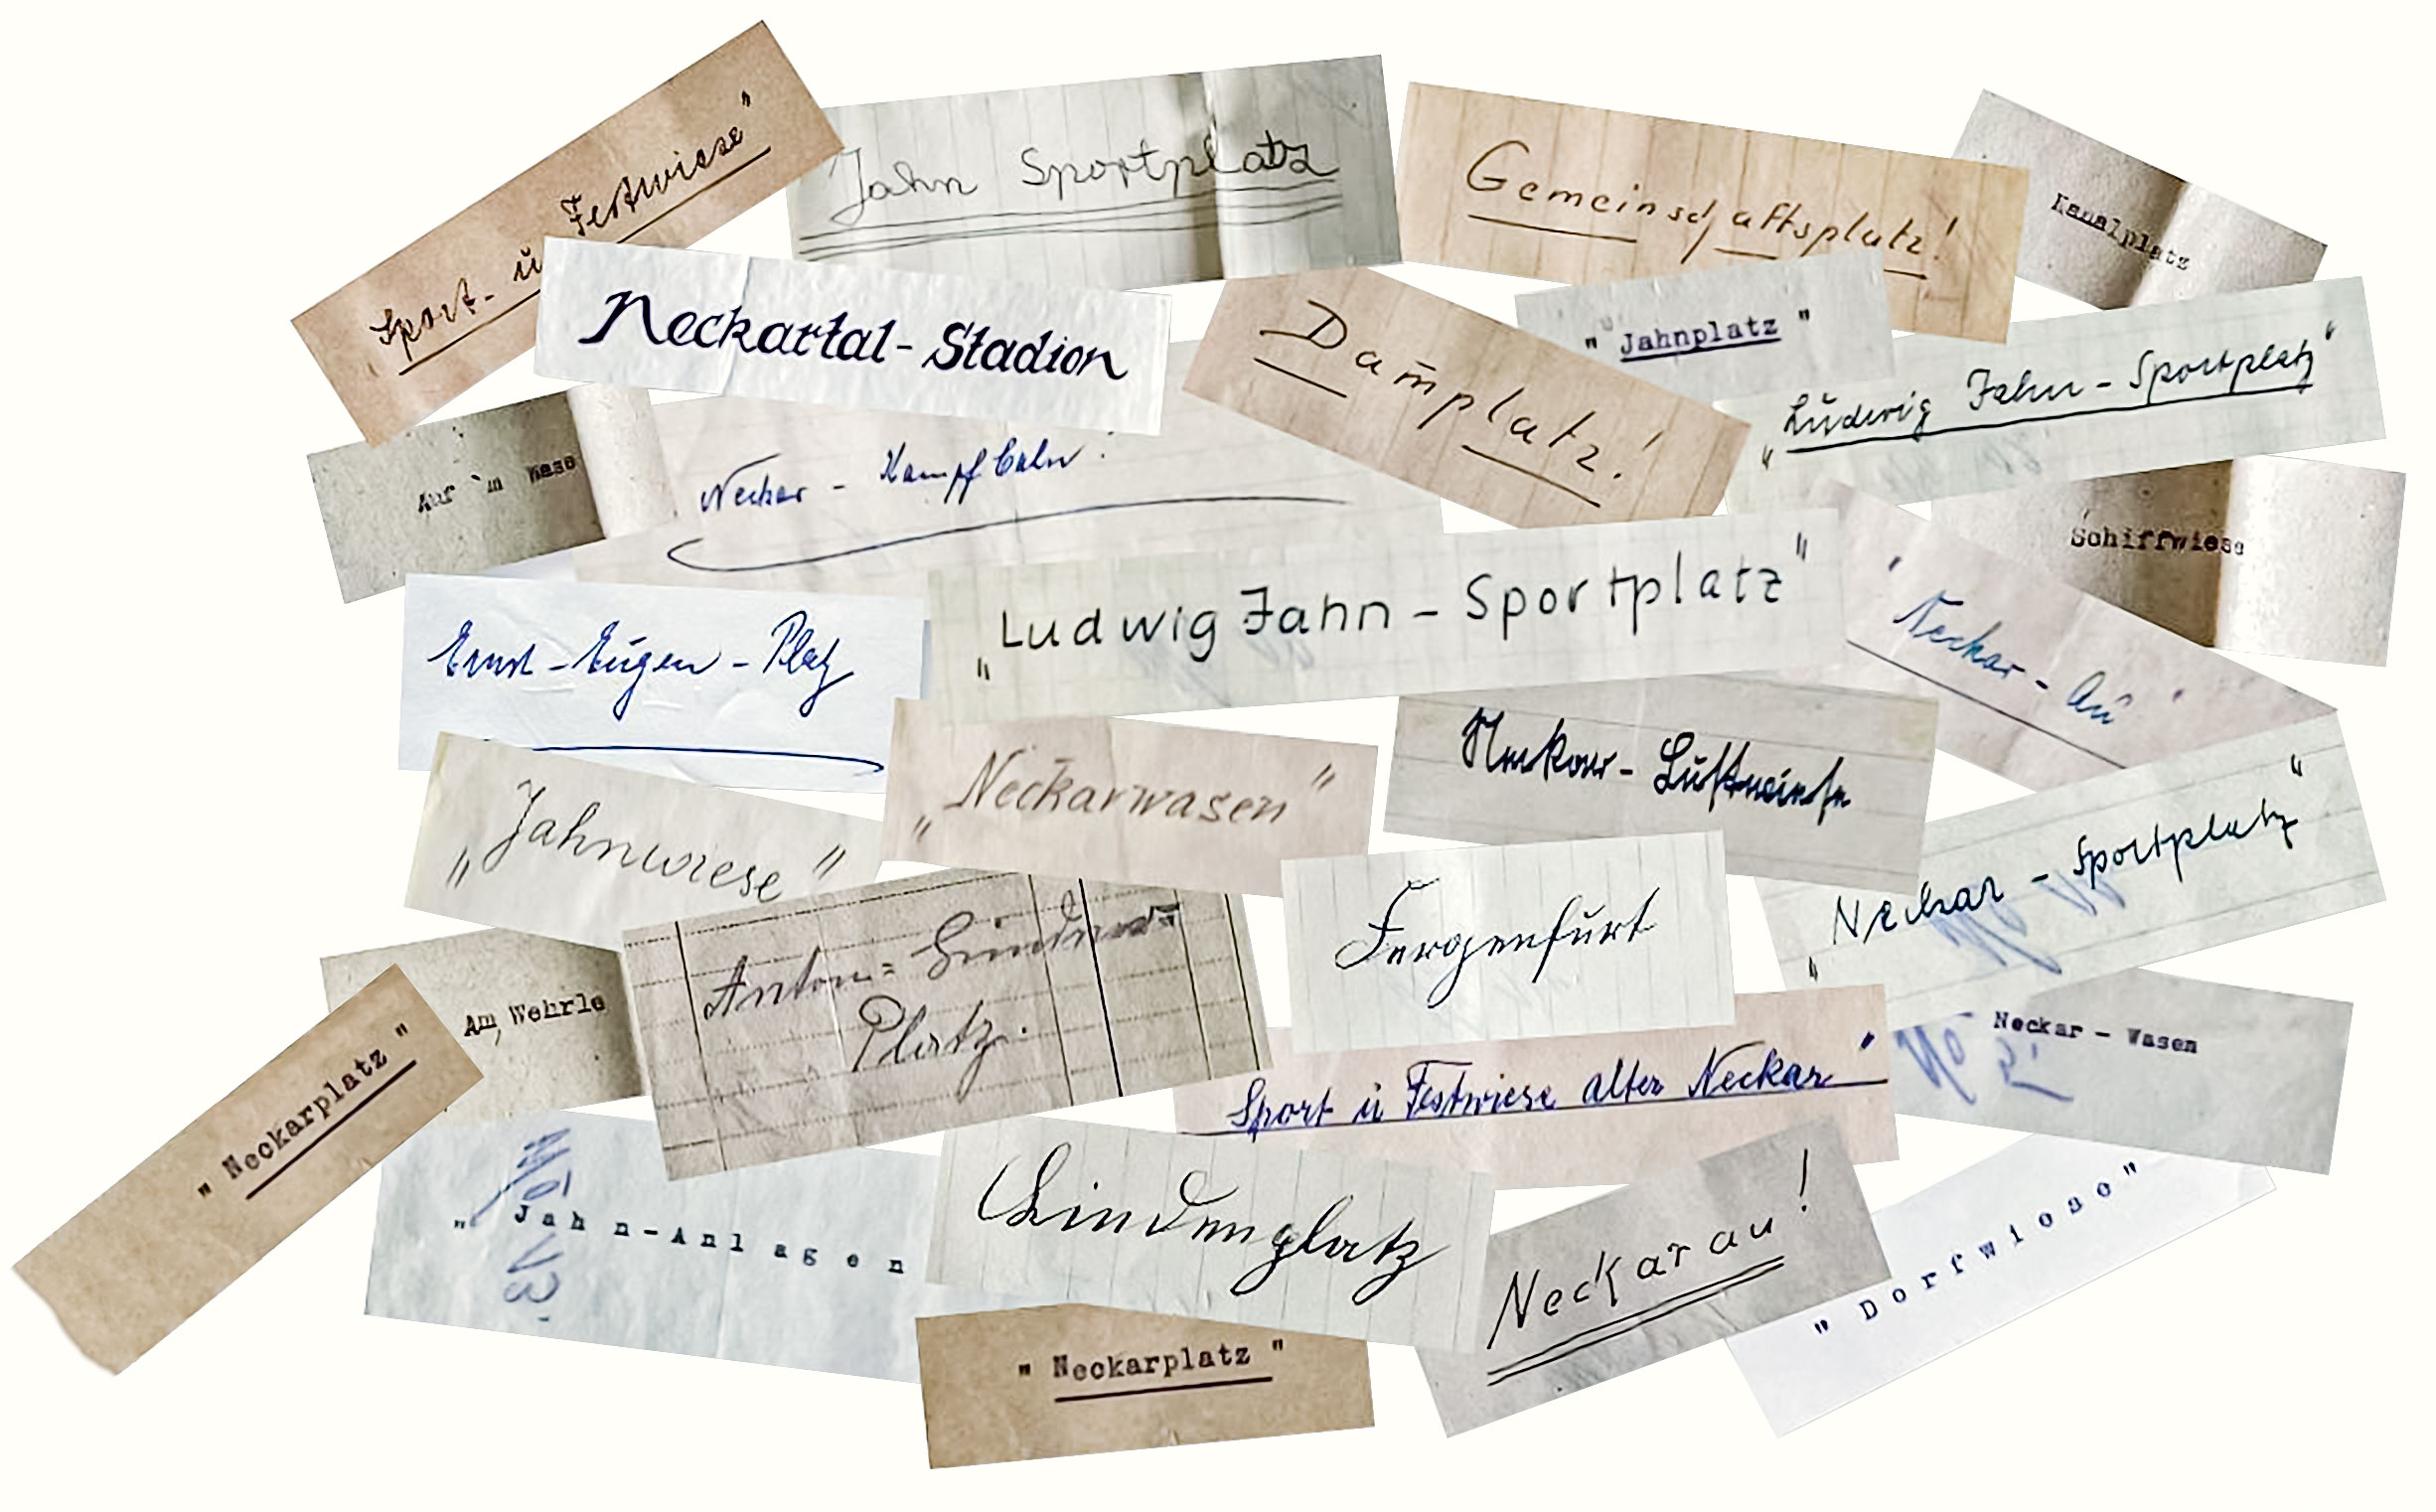 Sport- u. Festwiese"
Jahn Sportplatz
Gemeinschaftsplatz!
Kanalplatz
Neckartal-Stadion
Dam̄platz!
" Jahnplatz "
„Ludwig Jahn - Sportplatz"
Auf 'm Wase
Neckar - Kampfbahn!
Schiffwiese
Ernst-Eugen-Platz
„Ludwig Jahn - Sportplatz"
" Neckar - Au "
„Jahnwiese"
„Neckarwasen"
Neckar-
„Neckar - Sportplatz"
Am Wehrle
Anton=
Platz.
Fergenfurt
Neckar - Wasen
" Neckarplatz "
Sport u Festwiese alter Neckar"
" Jahn-Anlagen
Lindenplatz
Neckarau!
" Dorfwiese "
" Neckarplatz "